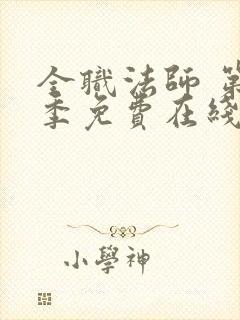 全職法師 第
季免費在綫
小學神